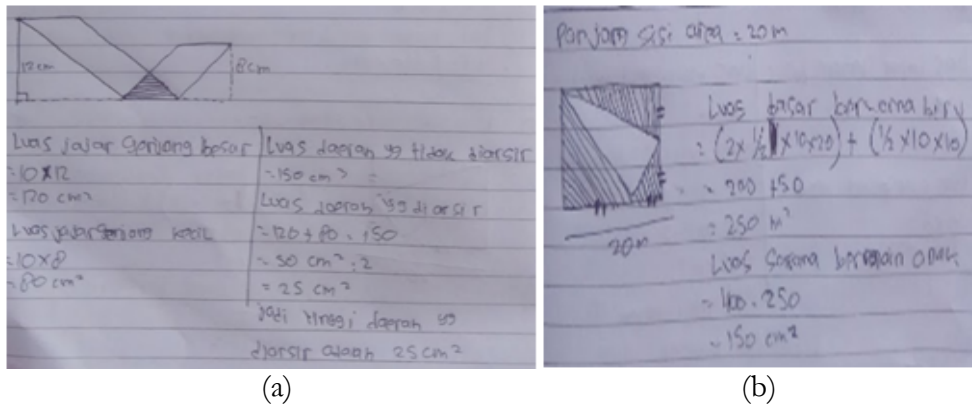 12cm
8cm
Luas jajar genjang besar
= 10 x 12
= 120 cm²
Luas jajar genjang kecil
= 10 x 8
= 80 cm²
Luas daerah yg tidak diarsir
= 150 cm²
Luas daerah yg diarsir
= 120 + 80 - 150
= 50 cm² : 2
= 25 cm²
Jadi tinggi daerah yg
diarsir adalah 25 cm²
(a)
Panjang sisi area = 20 m
20 m
Luas dasar berwarna biru
= (2 x ½ x 10 x 20) + (½ x 10 x 10)
= 200 + 50
= 250 m²
Luas sarana bermain anak
= 400 - 250
= 150 cm²
(b)